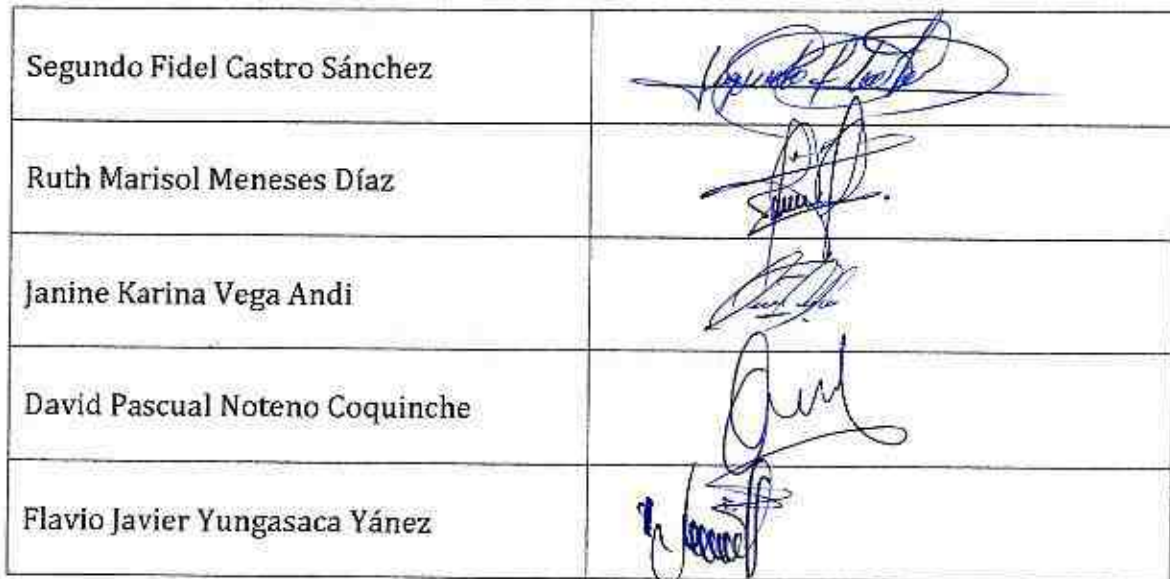 Segundo Fidel Castro Sánchez
Ruth Marisol Meneses Díaz
Janine Karina Vega Andi
David Pascual Noteno Coquinche
Flavio Javier Yungasaca Yánez